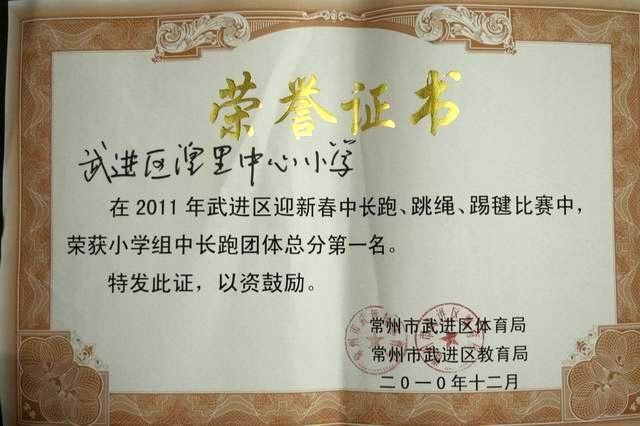 荣誉证书
武进区湟里中心小学
在2011年武进区迎新春中长跑、跳绳、踢毽比赛中，
荣获小学组中长跑团体总分第一名。
特发此证，以资鼓励。
常州市武进区体育局
常州市武进区教育局
二〇一〇年十二月